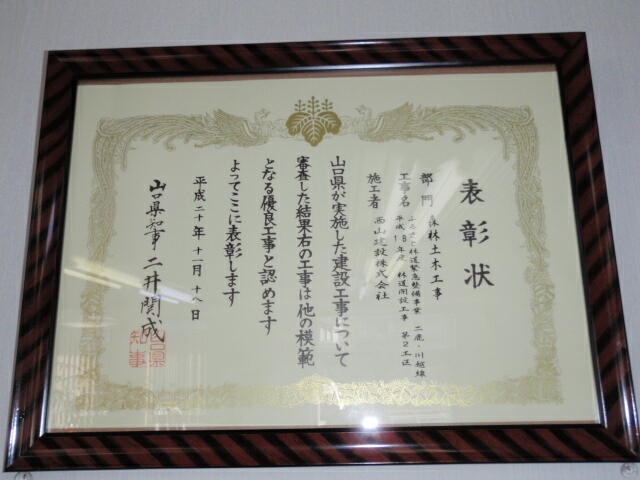 表彰状
部門 森林土木工事
工事名 ふるさと林道緊急整備事業 二鹿・川越線
平成18年度 林道開設工事 第2工区
施工者 西山建設株式会社
山口県が実施した建設工事について
審査した結果右の工事は他の模範
となる優良工事と認めます
よってここに表彰します
平成二十年十一月十八日
山口県知事 二井関成
山口県
知事